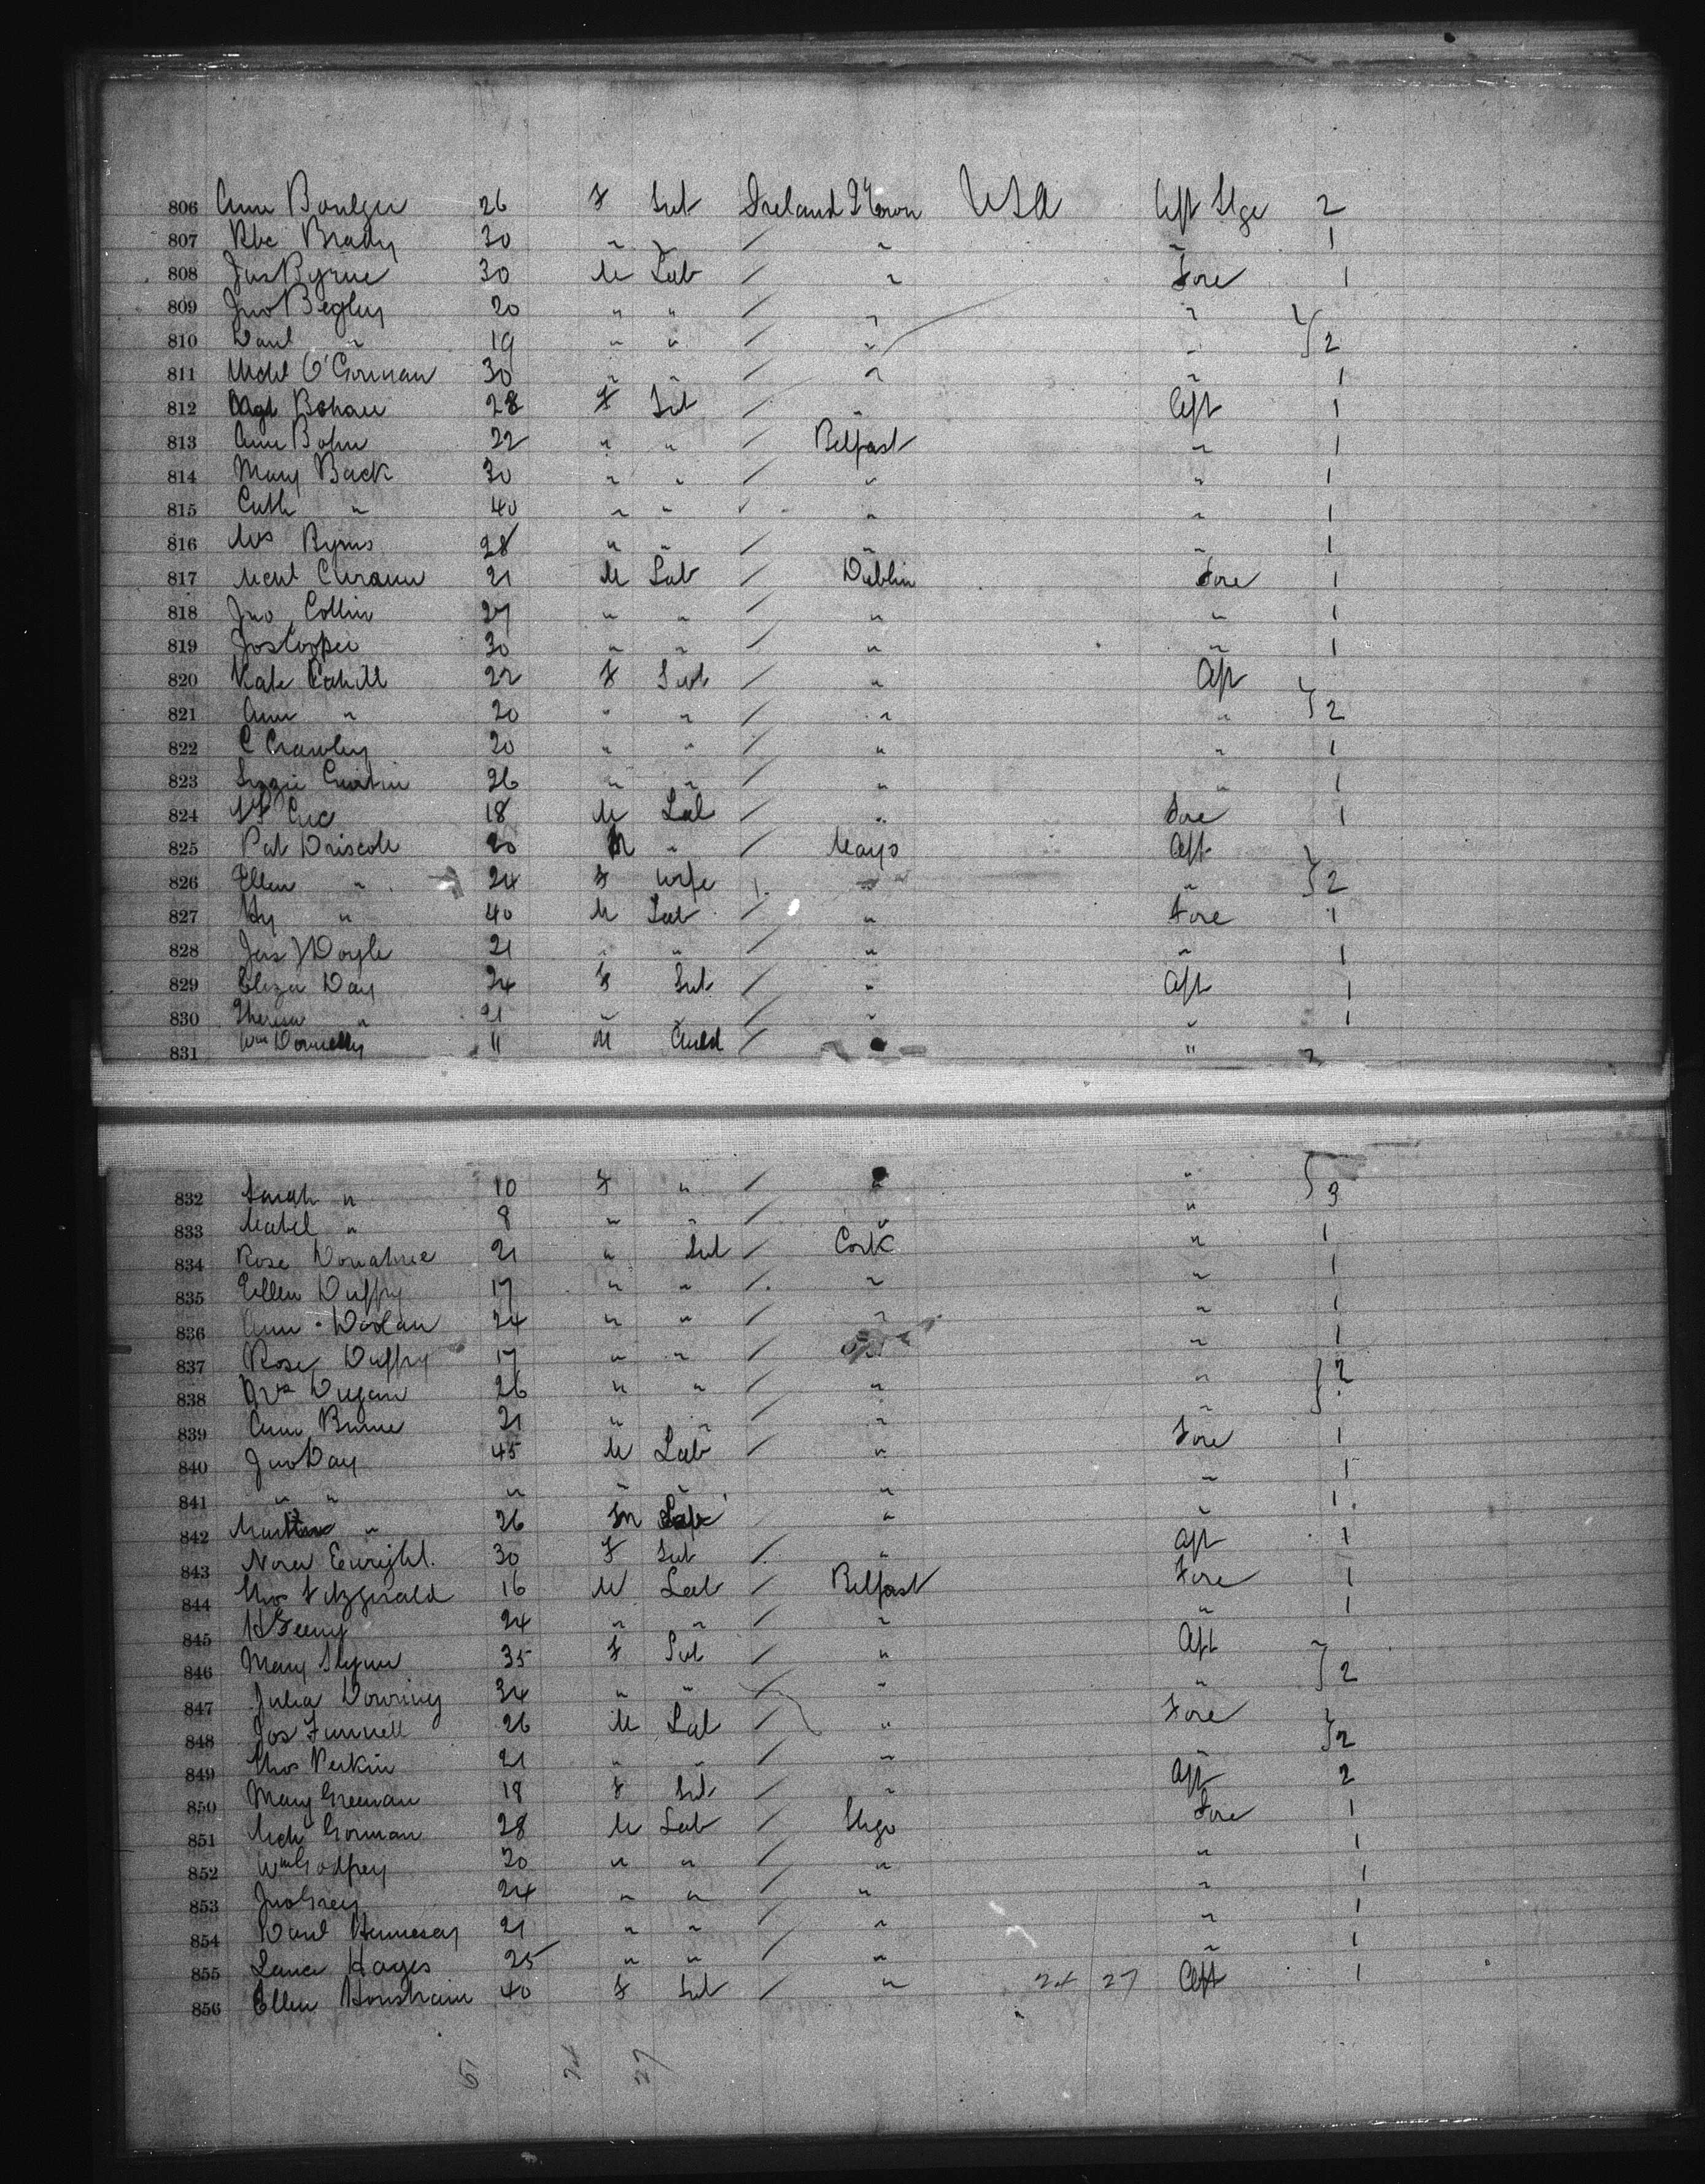 806 Ann Boulger 26 F Svt Ireland Qtown USA Aft Stge 2
807 Rbc Brady 30 " " / " " 1
808 Jas Byrne 30 M Lab / " Fore 1
809 Jno Begley 20 " " / " "
810 Danl " 19 " " / " " } 2
811 Mchl O'Gorman 30 " " / " " 1
812 Mgt Bohan 28 F Svt / " Aft 1
813 Ann Bohn 22 " " / Belfast " 1
814 Mary Back 30 " " / " " 1
815 Cath " 40 " " / " " 1
816 Mrs Byrns 28 " " / " " 1
817 Mchl Curann 21 M Lab / Dublin Fore 1
818 Jno Collin 27 " " / " " 1
819 Jos Cooper 30 " " / " " 1
820 Kate Cahill 22 F Svt / " Aft
821 Ann " 20 " " / " " } 2
822 C Crawley 20 " " / " " 1
823 Lizzie Curtin 26 " " / " " 1
824 18 M Lab / " Fore 1
825 Pat Driscole 20 M " / Mayo Aft
826 Ellen " 24 F Wife / " " } 2
827 Hy " 40 M Lab / " Fore 1
828 Jas Doyle 21 " " / " " 1
829 Eliza Day 24 F Svt / " Aft 1
830 Theresa " 21 " " / " " 1
831 Wm Donnelly 11 M Child / " "
832 Sarah " 10 F " / " " } 3
833 Mabel " 8 " " / " "
834 Rose Donahue 21 " Svt / Cork " 1
835 Ellen Duffy 17 " " / " " 1
836 Ann Doolan 24 " " / " " 1
837 Rose Duffy 17 " " / " " 1
838 Dugan 26 " " / " " } 2
839 Ann Burne 21 " " / " "
840 Jno Day 45 M Lab / " Fore 1
841 " " " " " " " 1
842 Martin " 26 M Lab " " 1
843 Nora Enright 30 F Svt / " Aft 1
844 Thos Fitzgerald 16 M Lab / Belfast Fore 1
845 H Feeny 24 " " / " " 1
846 Mary Flynn 35 F Svt / " Aft
847 Julia Downing 34 " " / " " } 2
848 Jos Funnell 26 M Lab / " Fore
849 Thos Perkin 21 " " / " " } 2
850 Mary Greenan 18 F Svt / " Aft 2
851 Mch Gorman 28 M Lab / Sligo Fore 1
852 Wm Godfrey 20 " " / " " 1
853 Jno Grey 24 " " / " " 1
854 Danl Hennesey 21 " " / " " 1
855 Hayes 25 " " / " " 1
856 Ellen Horisham 40 F Svt / " 24 27 Aft 1
51 24 27